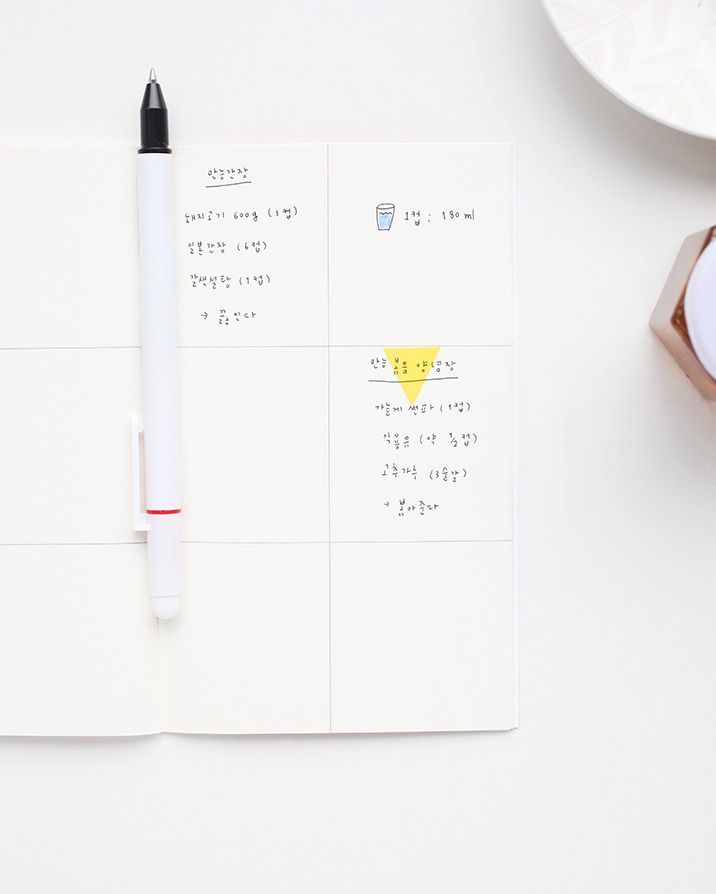 만능간장
돼지고기 600g (3컵)
일본간장 (6컵)
갈색설탕 (1컵)
→ 끓인다
1컵 : 180 ml
만능 볶음 양념장
가늘게 썬파 (1컵)
식용유 (약 1/2컵)
고추가루 (3숟갈)
→ 볶아준다